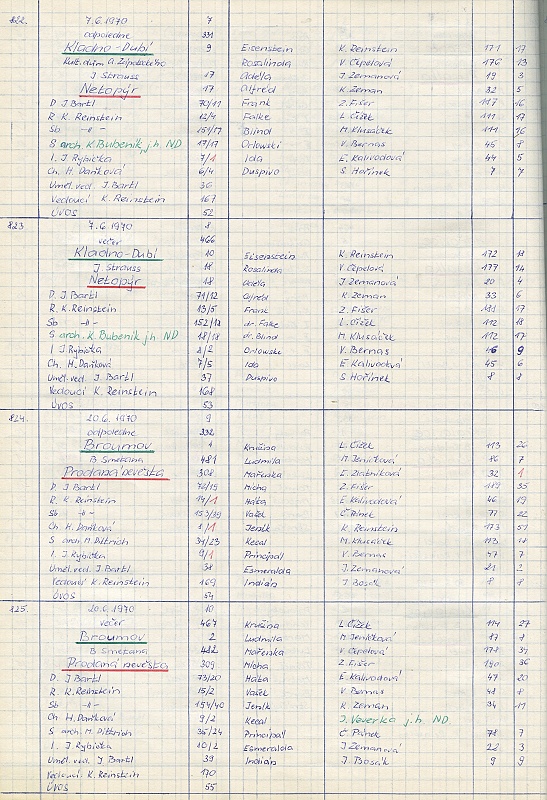 822. 7.6.1970 7
odpoledne 331
Kladno-Dubí 9 Eisenstein K. Reinstein 171 17
Kult.dům A. Zápotockého Rosalinda V. Čepelová 176 13
J Strauss 17 Adéla J. Zemanová 19 3
Netopýr 17 Alfréd K. Zeman 32 5
D J. Bartl 70/11 Frank Z. Fišer 117 16
R K. Reinstein 12/4 Falke L. Čížek 111 17
Sb -"- 151/17 Blind M. Klusáček 111 36
S arch. K. Bubeník j.h. ND 17/17 Orlowski V. Bernas 45 8
I. J. Rybička 7/1 Ida E. Kalivodová 44 5
Ch. H. Daňková 6/4 Duspivo S. Hořínek 7 7
Uměl. ved. J. Bartl 36
Vedoucí K. Reinstein 167
ÚVOS 52
823 7.6.1970 8
večer 466
Kladno-Dubí 10 Eisenstein K. Reinstein 172 18
J Strauss 18 Rosalinda V. Čepelová 177 14
Netopýr 18 Adéla J. Zemanová 20 4
D. J. Bartl 71/12 Alfréd K. Zeman 33 6
R. K. Reinstein 13/5 Frank Z. Fišer 111 17
Sb -"- 152/18 dr. Falke L. Čížek 112 18
S arch. K. Bubeník j.h ND 18/18 dr. Blind M. Klusáček 112 17
I J. Rybička 8/2 Orlowski V. Bernas 46 9
Ch. H. Daňková 7/5 Ida E. Kalivodová 45 6
Uměl. ved. J. Bartl 37 Duspivo S Hořínek 8 8
Vedoucí K. Reinstein 168
ÚVOS 53
824. 20.6.1970 9
odpoledne 332
Broumov 1 Krušina L. Čížek 113 26
B Smetana 481 Ludmila M. Jeníčková 86 7
Prodaná nevěsta 308 Mařenka E. Zlatníková 32 1
D J. Bartl 72/19 Mícha Z. Fišer 119 35
R. K. Reinstein 14/1 Háta E Kalivodová 46 19
Sb -"- 153/39 Vašek Č. Pánek 77 22
Ch H. Daňková 8/1 Jeník K. Reinstein 173 51
S arch. M. Dittrich 34/23 Kecal M. Klusáček 113
I. J. Rybička 9/1 Principál V. Bernas 47 7
Uměl. ved. J Bartl 38 Esmeralda J. Zemanová 21 2
Vedoucí K. Reinstein 169 Indián J Bosák 8 8
ÚVOS 54
825. 20.6.1970 10
večer 467 Krušina L. Čížek 114 27
Broumov 2 Ludmila M. Jeníčková
B Smetana 482 Mařenka V. Čepelová 178 34
Prodaná nevěsta 309 Mícha Z. Fišer 36
D J Bartl 73/20 Háta E Kalivodová 47 20
R. K. Reinstein 15/2 Vašek V. Bernas 48 8
Sb -"- 154/40 Jeník K. Zeman 34
Ch H. Daňková 9/2 Kecal J. Veverka j.h. ND
S arch. M. Dittrich 35/24 Principál Č. Pánek 78 7
I. J. Rybička 10/2 Esmeralda J. Zemanová 22 3
Uměl. ved. J Bartl 39 Indián J. Bosák 9 9
Vedoucí K. Reinstein 170
ÚVOS 55